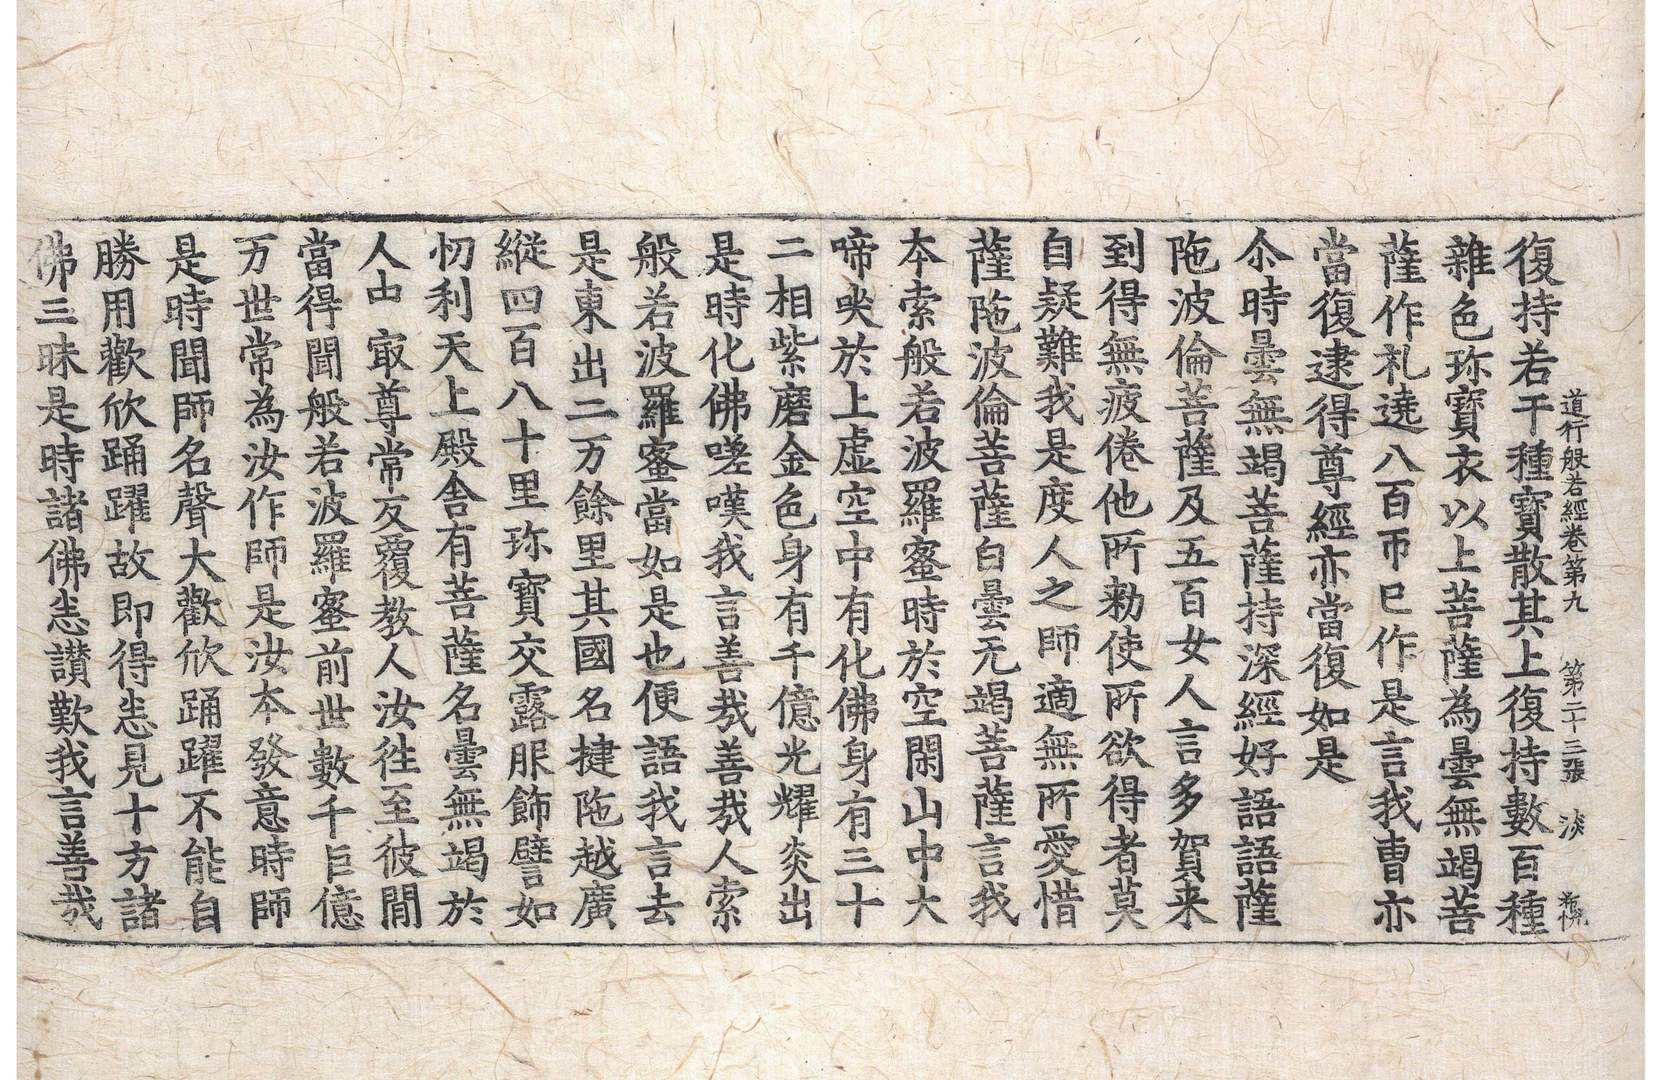 道行般若經卷第九 第二十三張 淡
復持若干種寶散其上復持數百種
雜色珎寶衣以上菩薩為曇無竭菩
薩作礼遶八百帀已作是言我曹亦
當復逮得尊經亦當復如是
尒時曇無竭菩薩持深經好語語薩
陁波倫菩薩及五百女人言多賀来
到得無疲倦他所勑使所欲得者莫
自疑難我是度人之師適無所愛惜
薩陁波倫菩薩白曇无竭菩薩言我
本索般若波羅蜜時於空閑山中大
啼㗛於上虛空中有化佛身有三十
二相紫磨金色身有千億光耀炎出
是時化佛嗟嘆我言善㢤善㢤人索
般若波羅蜜當如是也便語我言去
是東出二万餘里其國名揵陁越廣
縱四百八十里珎寶交露服飾譬如
忉利天上殿舍有菩薩名曇無竭於
人中㝡尊常反覆教人汝徃至彼閒
當得聞般若波羅蜜前世數千巨億
万世常為汝作師是汝本發意時師
是時聞師名聲大歡欣踊躍不能自
勝用歡欣踊躍故即得悉見十方諸
佛三昧是時諸佛悉讃歎我言善㢤